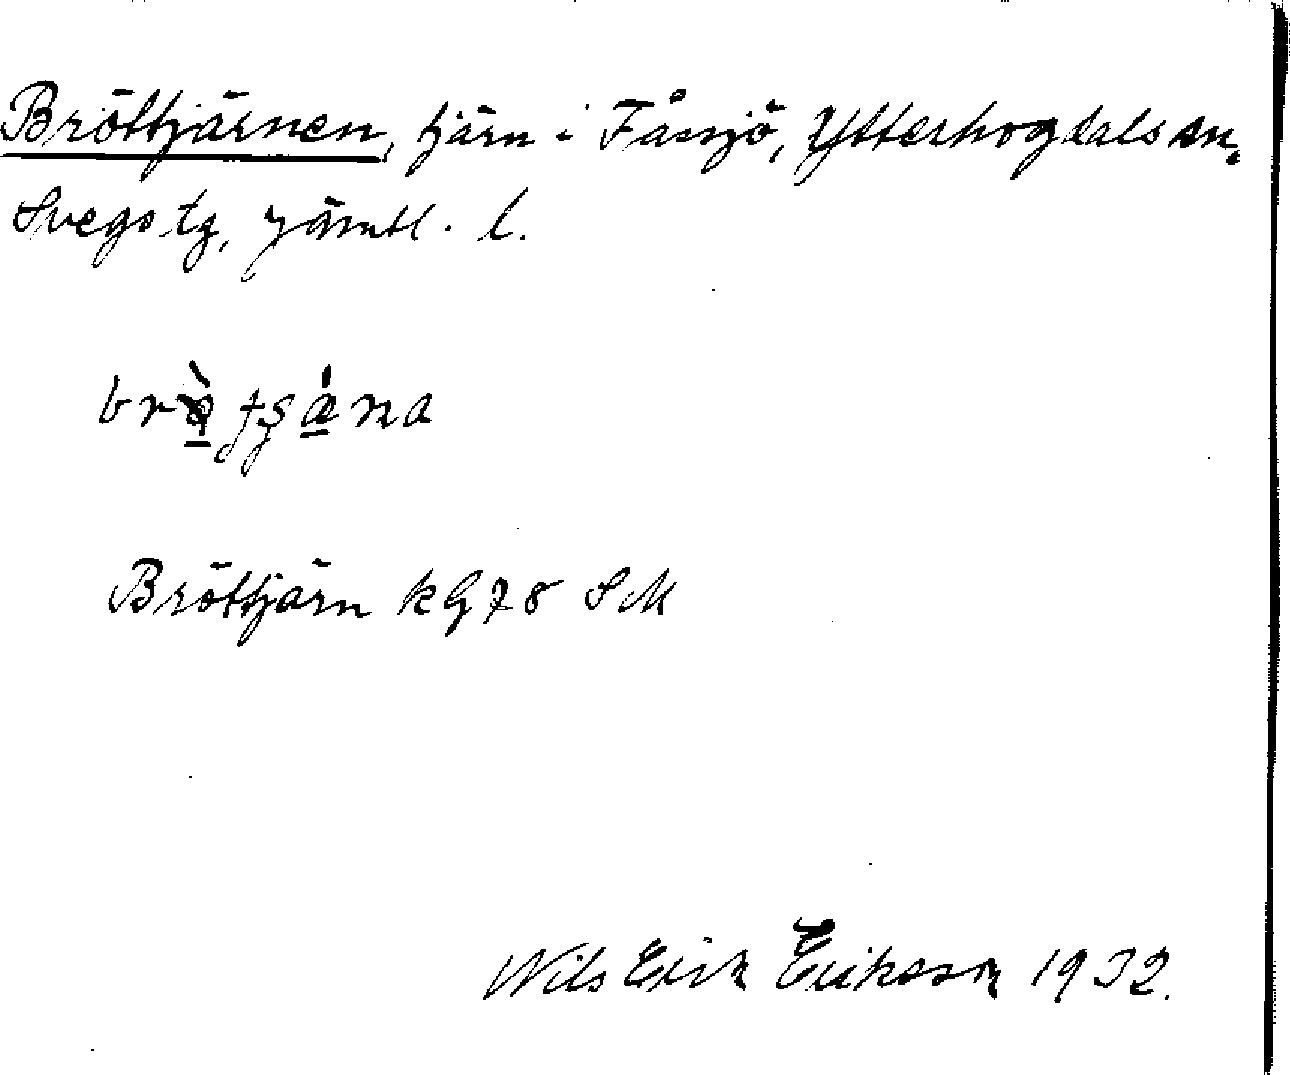 Bröttjärnen, tjärn i Fåssjö, Ytterhogdals sn,
Svegs tg, Jämtl. l.
Bröttjärn kG78 SM
Nils Erik Eriksson 1932.